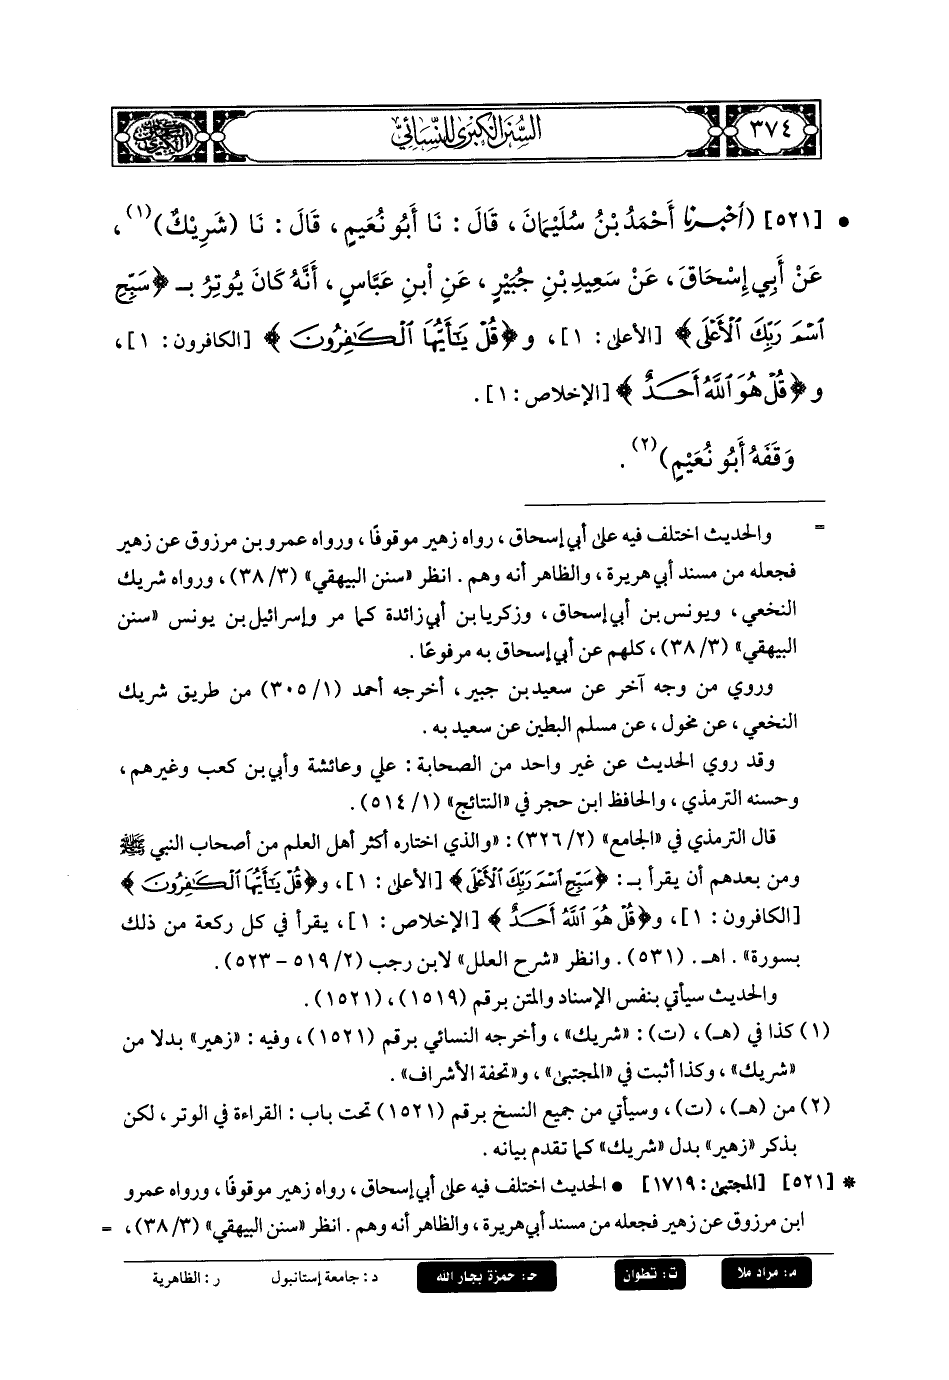 ٣٧٤
السنن الكبرى للنسائي
• [٥٢١] (أخبرنا أَحْمَدُ بْنُ سُلَيْمَانَ، قَالَ: نَا أَبُو نُعَيمٍ، قَالَ: نَا (شَرِيكٌ)(١)،
عَنْ أَبِي إِسْحَاقَ، عَنْ سَعِيدِ بْنِ جُبَيْرٍ، عَنِ ابْنِ عَبَّاسٍ، أَنَّهُ كَانَ يُوتِرُ بـ ﴿سَبِّحِ
ٱسْمَ رَبِّكَ ٱلْأَعْلَى﴾ [الأعلى: ١]، و﴿قُلْ يَـٰٓأَيُّهَا ٱلْكَـٰفِرُونَ﴾ [الكافرون: ١]،
و﴿قُلْ هُوَ ٱللَّهُ أَحَدٌ﴾ [الإخلاص: ١].
وَقَفَهُ أَبُو نُعَيْمٍ)(٢).
= والحديث اختلف فيه على أبي إسحاق، رواه زهير موقوفًا، ورواه عمرو بن مرزوق عن زهير
فجعله من مسند أبي هريرة، والظاهر أنه وهم. انظر «سنن البيهقي» (٣/ ٣٨)، ورواه شريك
النخعي، ويونس بن أبي إسحاق، وزكريا بن أبي زائدة كما مر وإسرائيل بن يونس «سنن
البيهقي» (٣/ ٣٨)، كلهم عن أبي إسحاق به مرفوعًا.
وروي من وجه آخر عن سعيد بن جبير، أخرجه أحمد (١/ ٣٠٥) من طريق شريك
النخعي، عن مخول، عن مسلم البطين عن سعيد به.
وقد روي الحديث عن غير واحد من الصحابة: علي وعائشة وأبي بن كعب وغيرهم،
وحسنه الترمذي، والحافظ ابن حجر في «النتائج» (١/ ٥١٤).
قال الترمذي في «الجامع» (٢/ ٣٢٦): «والذي اختاره أكثر أهل العلم من أصحاب النبي ﷺ
ومن بعدهم أن يقرأ بـ: ﴿سَبِّحِ ٱسْمَ رَبِّكَ ٱلْأَعْلَى﴾ [الأعلى: ١]، و﴿قُلْ يَـٰٓأَيُّهَا ٱلْكَـٰفِرُونَ﴾
[الكافرون: ١]، و﴿قُلْ هُوَ ٱللَّهُ أَحَدٌ﴾ [الإخلاص: ١]، يقرأ في كل ركعة من ذلك
بسورة». اهـ. (٥٣١). وانظر «شرح العلل» لابن رجب (٢/ ٥١٩ - ٥٢٣).
والحديث سيأتي بنفس الإسناد والمتن برقم (١٥١٩)، (١٥٢١).
(١) كذا في (هـ)، (ت): «شريك»، وأخرجه النسائي برقم (١٥٢١)، وفيه: «زهير» بدلا من
«شريك»، وكذا أثبت في «المجتبى»، و«تحفة الأشراف».
(٢) من (هـ)، (ت)، وسيأتي من جميع النسخ برقم (١٥٢١) تحت باب: القراءة في الوتر، لكن
بذكر «زهير» بدل «شريك» كما تقدم بيانه.
* [٥٢١] [المجتبى: ١٧١٩] • الحديث اختلف فيه على أبي إسحاق، رواه زهير موقوفًا، ورواه عمرو
ابن مرزوق عن زهير فجعله من مسند أبي هريرة، والظاهر أنه وهم. انظر «سنن البيهقي» (٣/ ٣٨)، =
م: مراد ملا ت: تطوان حـ: حمزة بجار الله د: جامعة إستانبول ر: الظاهرية